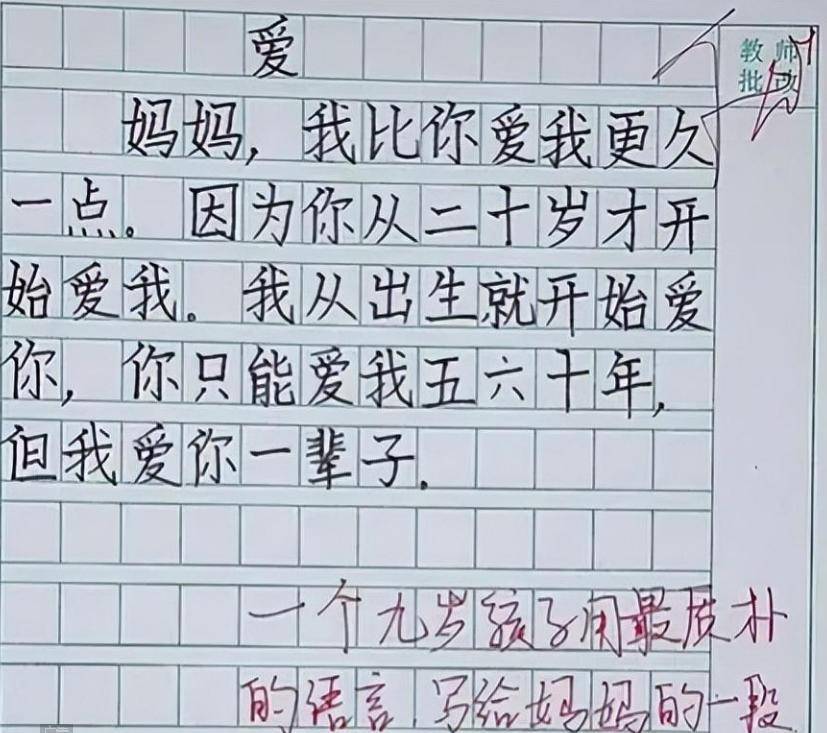 爱
教师
批改
妈妈，我比你爱我更久
一点。因为你从二十岁才开
始爱我。我从出生就开始爱
你，你只能爱我五六十年，
但我爱你一辈子.
一个九岁孩子用最质朴
的语言，写给妈妈的一段